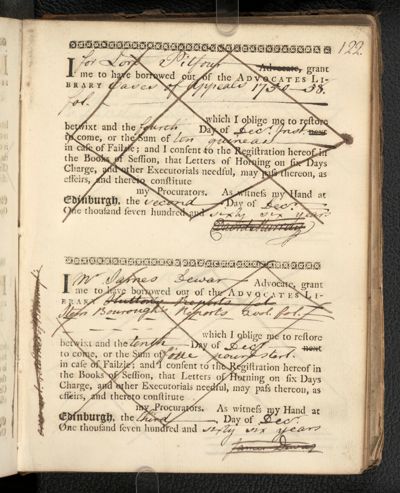 122.
I for Lord Pitfour Advocate, grant
me to have borrowed out of the ADVOCATES LI-
BRARY Cases of Appeals 1730-38.
fol.
which I oblige me to restore
betwixt and the fourth Day of Decr. Inst. next
to come, or the Sum of ten guineas
in case of Failzie; and I consent to the Registration hereof in
the Books of Session, that Letters of Horning on six Days
Charge, and other Executorials needful, may pass thereon, as
effeirs, and thereto constitute
my Procurators. As witness my Hand at
Edinburgh, the second Day of Decr.
One thousand seven hundred and sixty six years
David Murray
I Mr James Dewar Advocate, grant
me to have borrowed out of the ADVOCATES LI-
BRARY Reports fol.
Burroughs Reports
which I oblige me to restore
betwixt and the tenth Day of Decr. next
to come, or the Sum of five pound sterl.
in case of Failzie; and I consent to the Registration hereof in
the Books of Session, that Letters of Horning on six Days
Charge, and other Executorials needful, may pass thereon, as
effeirs, and thereto constitute
my Procurators. As witness my Hand at
Edinburgh, the third Day of Decr.
One thousand seven hundred and sixty six years
James Dewar